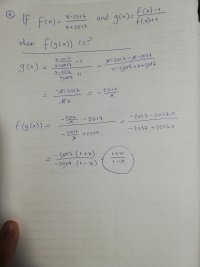 If f(x) = (x-2017)/(x+2017) and g(x) = (f(x)-1)/(f(x)+1)
then f(g(x)) is?
g(x) = ((x-2017)/(x+2017) - 1)/((x-2017)/(x+2017) + 1) = (x-2017-x-2017)/(x-2017+x+2017)
= (-2·2017)/(2x) = -2017/x
f(g(x)) = (-2017/x - 2017)/(-2017/x + 2017) = (-2017-2017x)/(-2017+2017x)
= (-2017(1+x))/(-2017(1-x)) = (1+x)/(1-x)